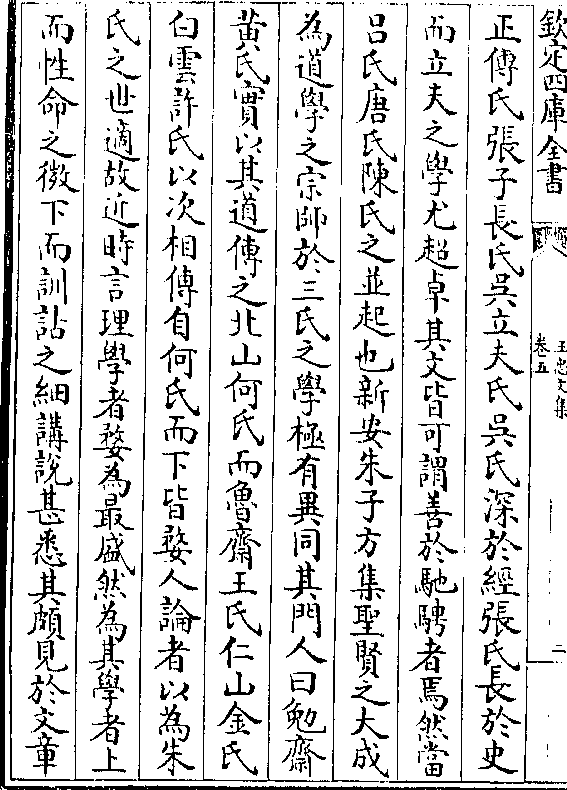 欽定四庫全書
王忠文集
卷五
二
正傳氏張子長氏吳立夫氏吳氏深於經張氏長於史
而立夫之學尤超卓其文皆可謂善於馳騁者焉然當
吕氏唐氏陳氏之並起也新安朱子方集聖賢之大成
為道學之宗師於三氏之學極有異同其門人曰勉齋
黄氏實以其道傳之北山何氏而魯齋王氏仁山金氏
白雲許氏以次相傳自何氏而下皆婺人論者以為朱
氏之世適故近時言理學者婺為最盛然為其學者上
而性命之微下而訓詁之細講說甚悉其頗見於文章